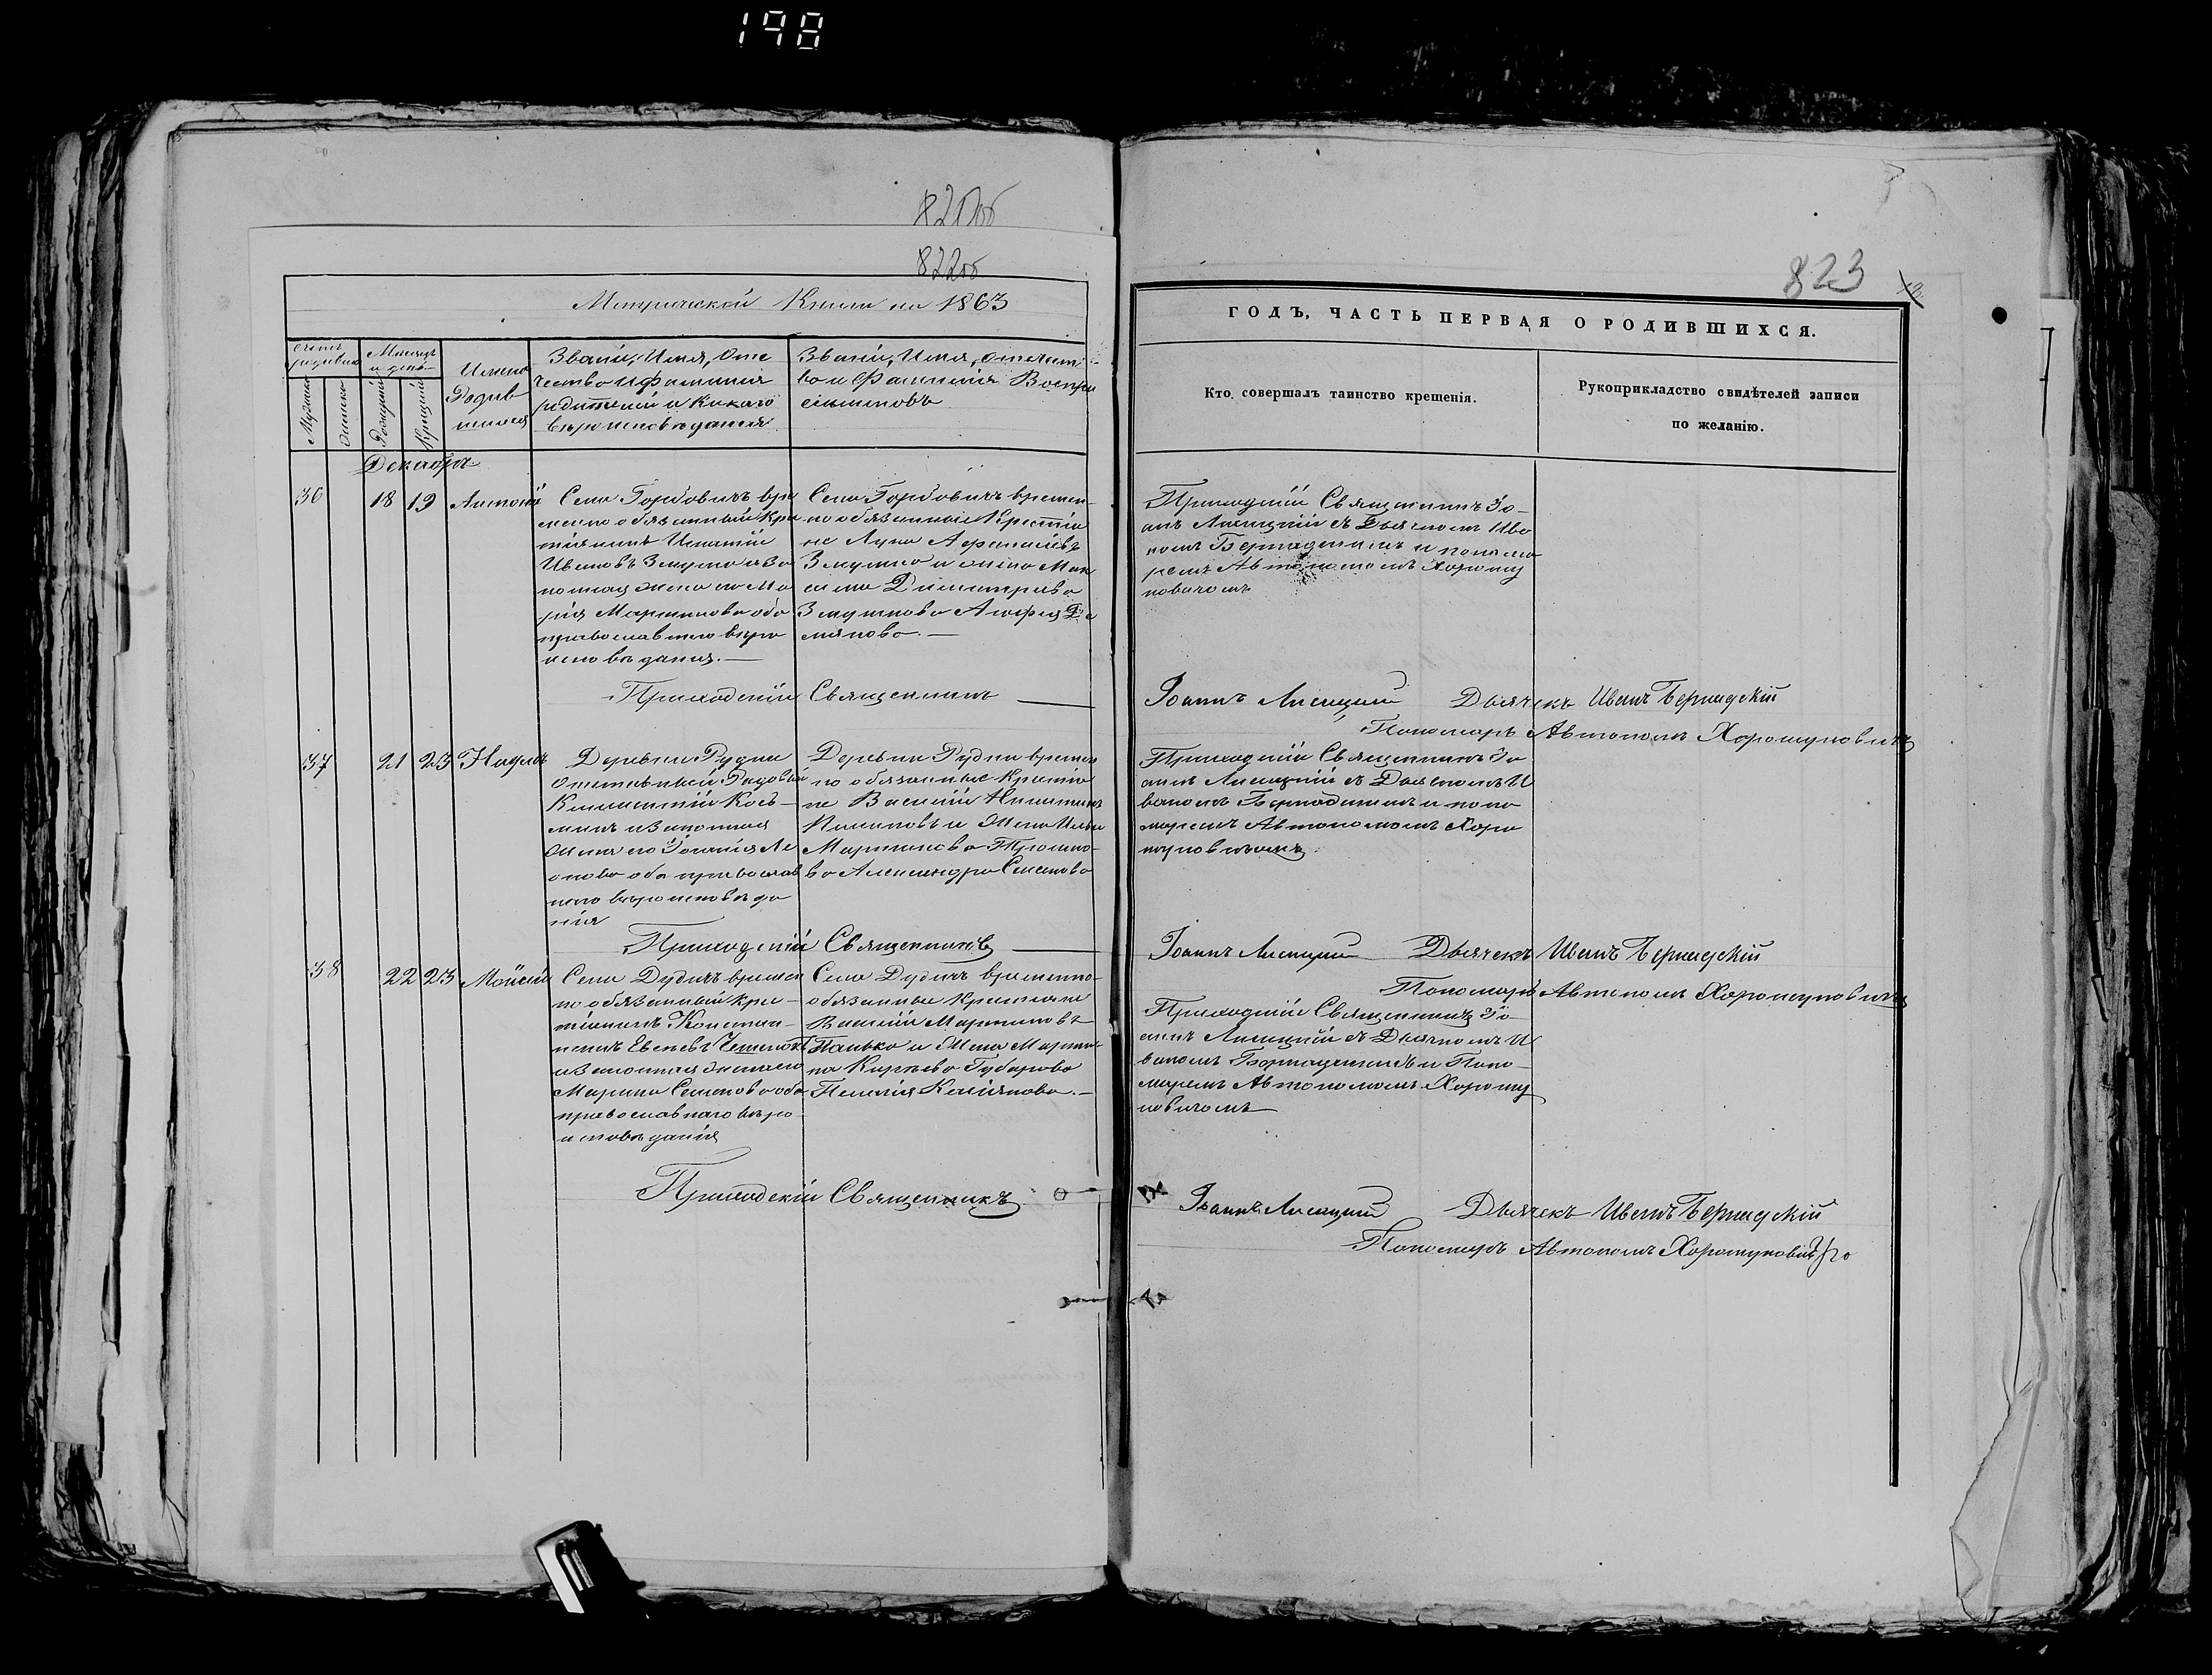 198
821об
822об
Метрической Книги на 1863
Счетъ родивш
Мѣсяцъ и день
Мужска
Женска
Рожденій
Крещеній
Имена
Родив
шихся
Званіе, Имя, Оте
чество и Фамилия
родителей и какого
вѣроисповѣданія
Званіе, Имя, Отечест
во и Фамилія Воспри
емниковъ
Декабрь
36 18 19 Антоній
Села Горбовичъ вре
менно обязанный Кре
стіянинъ Игнатій
Ивановъ Змушко и За
конная жена его Ма
рія Мартинова оба
православнаго вѣро
исповѣданія.
Села Горбовичъ времен-
но обязанные Крестія
не Лука Афанасіевъ
Змушко и жена Мак
сима Димитриева
Змушкова Агафія Де
мянова.
Приходскій Священникъ
37 21 23
Деревни Рудни
Отставный Рядовый
Климентій Косъ-
минъ и Законная
Жена его Іоанія Ле
онова оба православ
наго вѣроисповѣда
нія
Деревни Рудни времен
но обязанные Крестія
не Василій Никитинъ
и Жена Ильи
Мартинова
ва Александра Семенова
Приходскій Священникъ
38 22 23 Моисей
Села Дудичъ времен
но обязанный Кре-
стіянинъ Констан-
тинъ Евсевъ
и Законная жена его
Марина Семенова оба
православнаго вѣро
исповѣданія
Села Дудичъ временно-
обязанные Крестіяне
Василій Мартиновъ
Панько и Жена Марти-
на Киріева Губарева
Пелагія Касіянова.
Приходскій Священникъ
823
ГОДЪ, ЧАСТЬ ПЕРВАЯ О РОДИВШИХСЯ.
Кто совершалъ таинство крещенія.
Рукоприкладство свидѣтелей записи
по желанію.
Приходскій Священникъ Іо-
анъ Лисицкій съ Дьячкомъ Ива
номъ Бернадскимъ и понома
ремъ Автономомъ Хорошу
новичомъ
Іоаннъ Лисицкій Дьячекъ Иванъ Бернадскій
Пономарь Автономъ Хорошуновичъ
Приходскій Священникъ Іо
аннъ Лисицкій съ Дьячкомъ И
ваномъ Бернадскимъ и поно
маремъ Автономомъ Хоро
шуновичомъ.
Іоаннъ Лисицкій Дьячекъ Иванъ Бернадскій
Пономарь Автономъ Хорошуновичъ
Приходскій Священникъ Іо-
аннъ Лисицкій съ Дьячкомъ И
ваномъ Бернадскимъ и Поно-
маремъ Автономомъ Хорошу
новичомъ
Іоаннъ Лисицкій Дьячекъ Иванъ Бернадскій
Пономарь Автономъ Хорошуновичъ